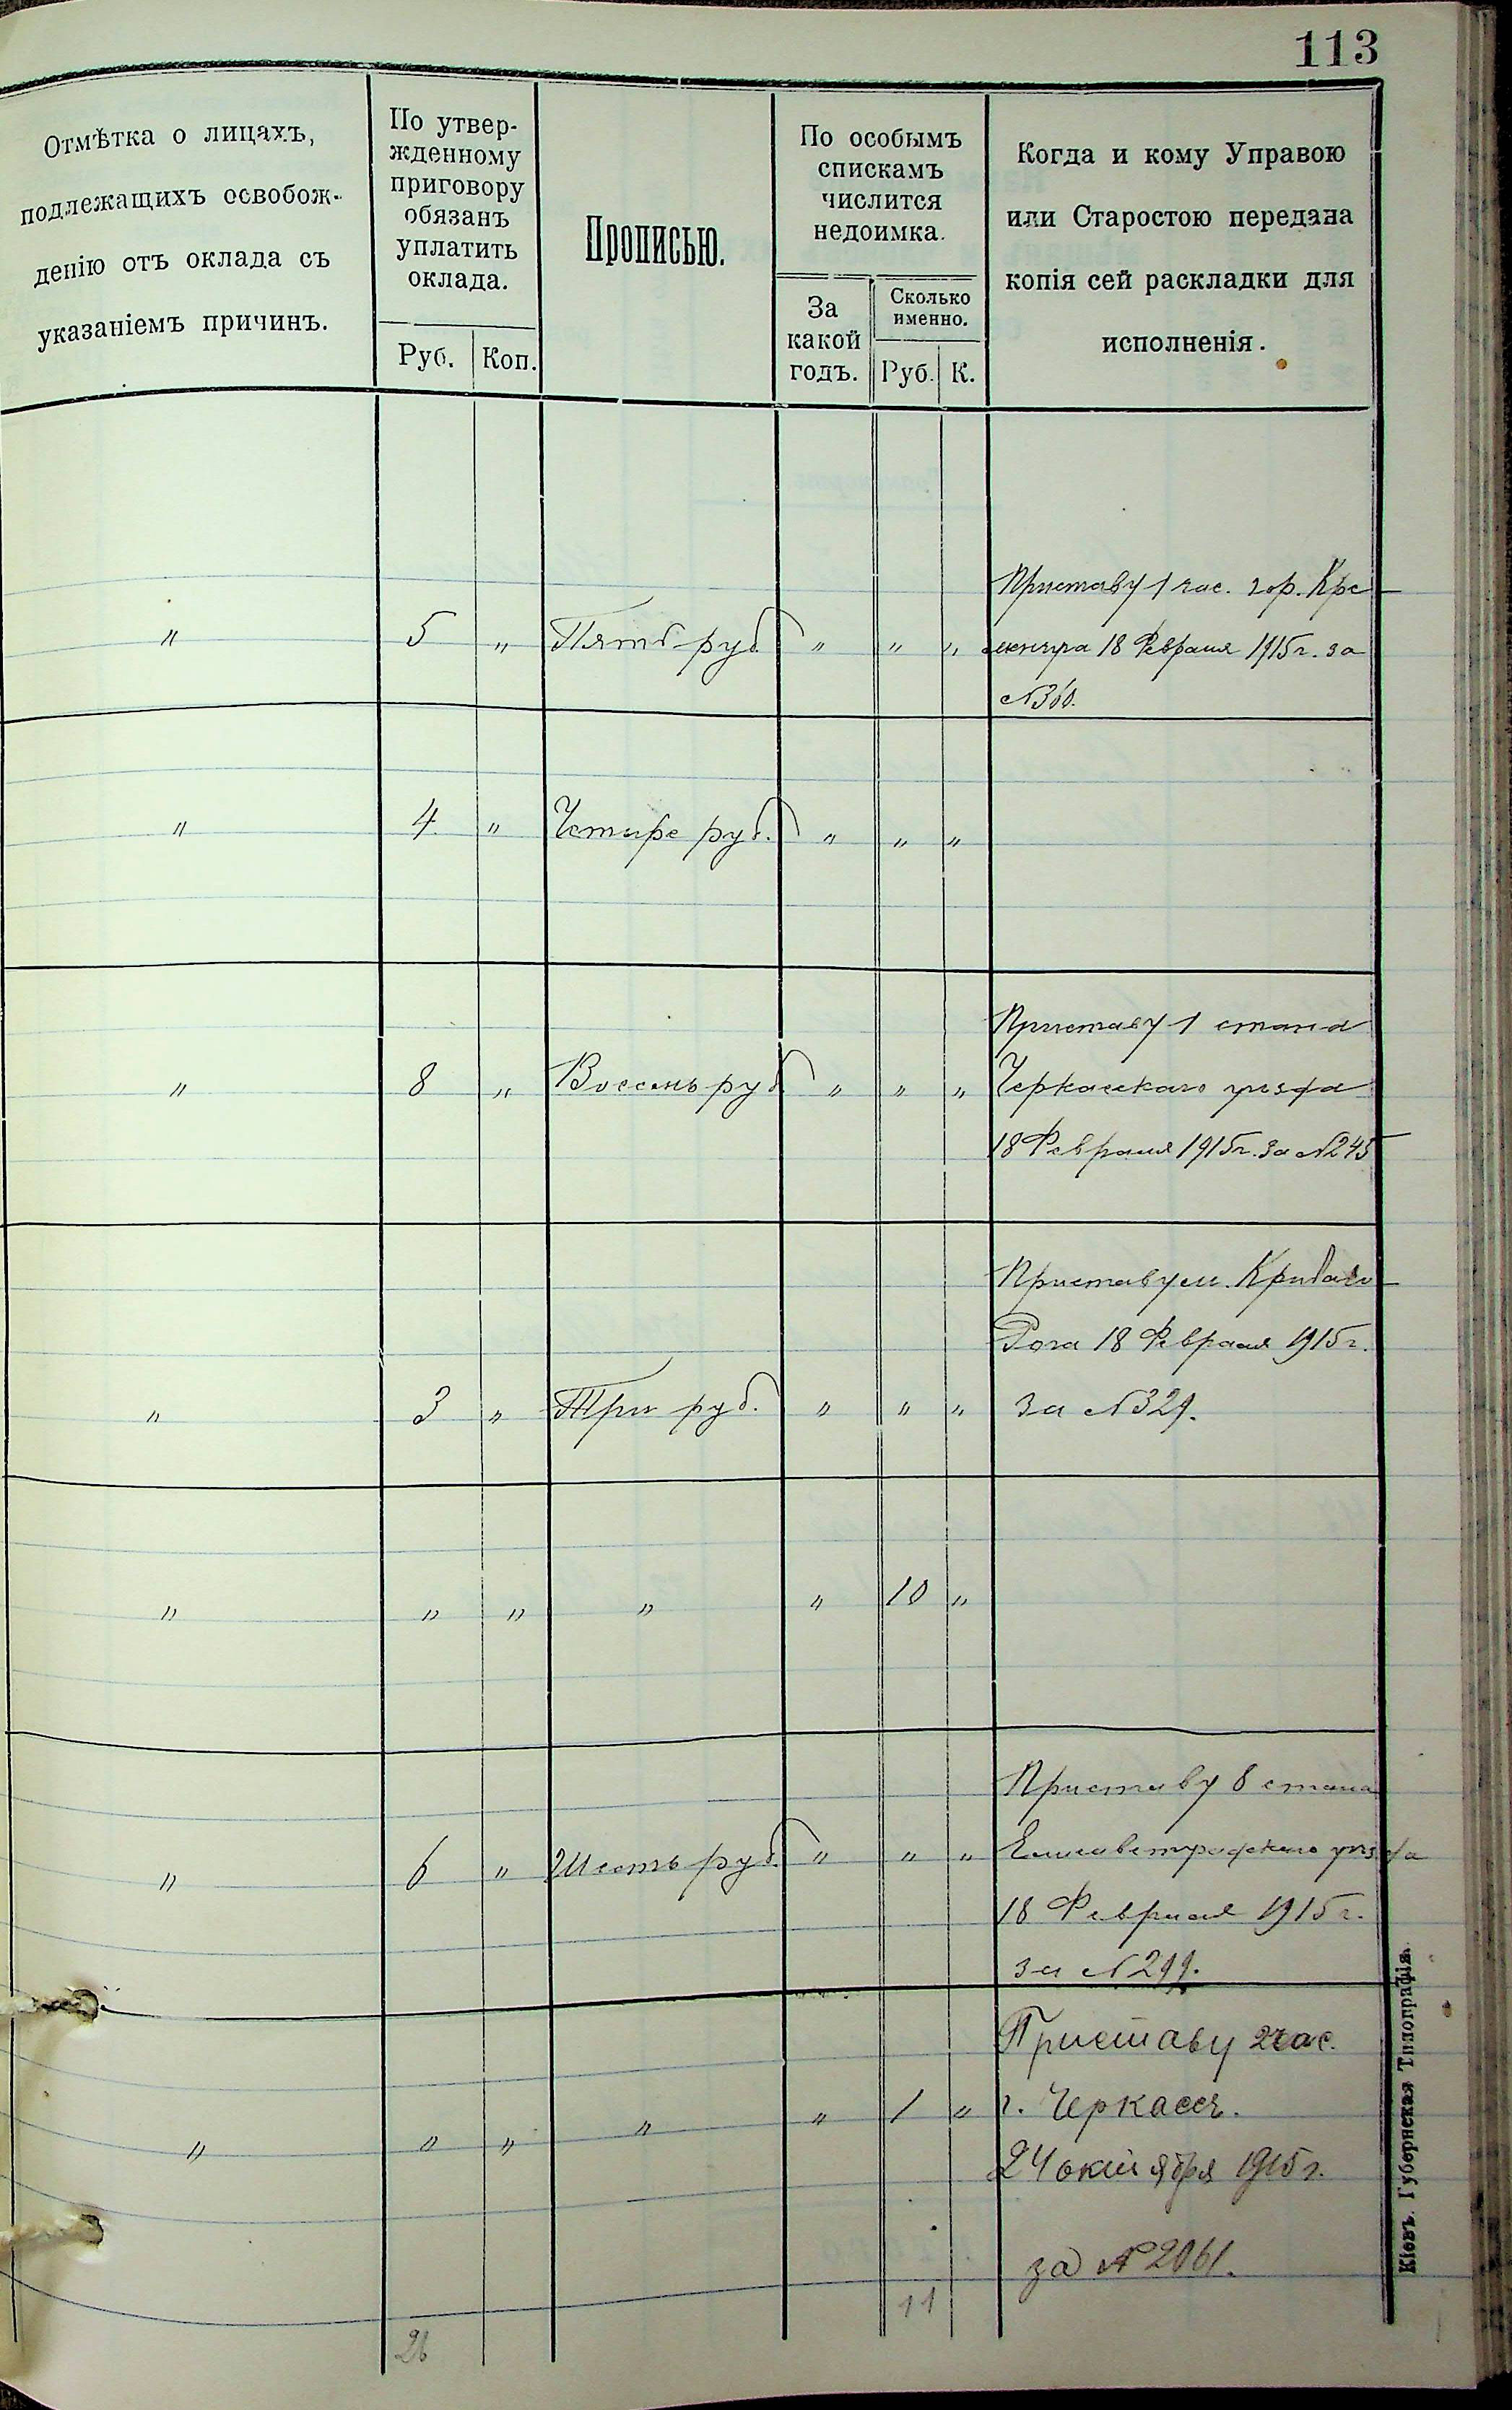 113
Отмѣтка о лицахъ,
подлежащихъ освобож-
денію отъ оклада съ
указаніемъ причинъ.
По утвер-
жденному
приговору
обязанъ
уплатить
оклада.
Руб. Коп.
Прописью.
По особымъ
спискамъ
числится
недоимка.
За
какой
годъ.
Сколько
именно.
Руб. К.
Когда и кому Управою
или Старостою передана
копія сей раскладки для
исполненія.
Приставу 1 час. гор. Кре
" 5 " Пять руб. " " " менчуга 18 Февраля 1915 г. за
№ 360.
" 4 " Четыре руб. " " "
Приставу 1 стана
" 8 " Восемь руб. " " " Черкасскаго уѣзда
18 Февраля 1915 г. за № 245
Приставу м. Кривого
Рога 18 Февраля 1915 г.
" 3 " Три руб. " " " за № 329.
" " " " " 10 "
Приставу 8 стана
" 6 " Шесть руб. " " " Елисаветградскаго уѣзда
18 Февраля 1915 г.
за № 299.
Приставу 2 час.
" " " " " 1 " г. Черкассъ.
24 октября 1915 г.
за № 2061.
26 11
Кіевъ. Губернская Типографія.